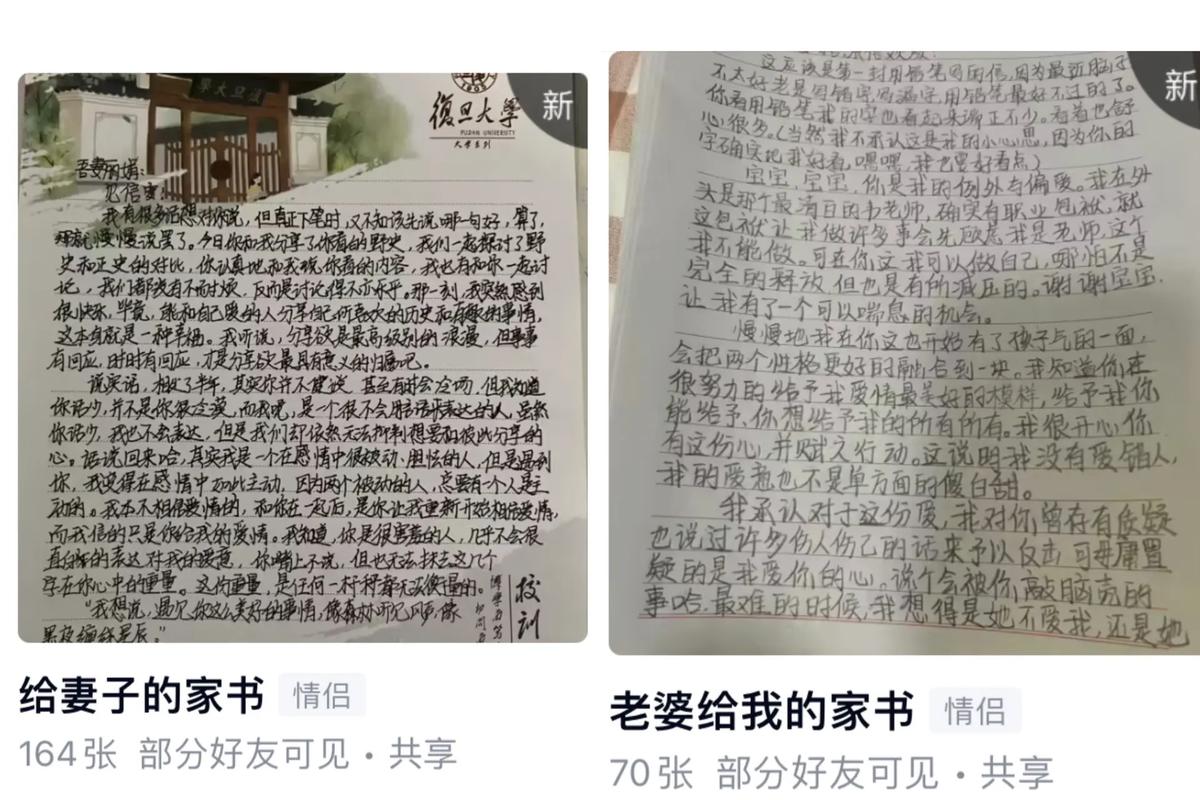 學大旦復
1905
復旦大學
FUDAN UNIVERSITY
大学系列
新
吾妻丽娟:
见信安
我有很多话想对你说，但真正下笔时，又不知该先说哪一句好，算了，
那就慢慢说罢了。今日你和我分享了你看的野史，我们一起探讨了野
史和正史的对比，你认真地和我说你看的内容，我也有和你一起讨
论，我们都没有不耐烦，反而是讨论得不亦乐乎。那一刻，我突然感到
很快乐，毕竟，能和自己爱的人分享自己所喜欢的历史和有趣的事情，
这本身就是一种幸福。我听说，分享欲是最高级别的浪漫，但事事
有回应，时时有回应，才是分享欲最具有意义的归宿吧。
说实话，相处了半年，其实你并不健谈，甚至有时会冷场，但我知道
你话少，并不是你很冷漠，而我呢，是一个很不会用话语表达的人，虽然
你话少，我也不会表达，但是我们却依然无法抑制想要和彼此分享的
心。话说回来哈，其实我是一个在感情中很被动、胆怯的人，但是遇到
你，我变得在感情中如此主动，因为两个被动的人，总要有一个人是主
动的。我本不相信爱情的，和你在一起后，是你让我重新开始相信爱情，
而我信的只是你给我的爱情。我知道，你是很害羞的人，几乎不会很
直白的表达对我的爱意，你嘴上不说，但也无法抹去这几个
字在你心中的重量。这份重量，是任何一杆秤都无法衡量的。
“我想说，遇见你这么美好的事情，像森林听见风声，像
黑夜缠绵星辰。”
校训
博学而笃
切问
给妻子的家书 情侣
164张 部分好友可见・共享
这应该是第一封用铅笔写的信，因为最近脑子
不太好老是写错字写漏字，用铅笔最好不过的了。
你看用铅笔我的字也看起来端正不少。看着也舒
心很多。(当然我不承认这是我的小心思，因为你的
字确实比我好看，嘿嘿，我也要好看点)
宝宝，宝宝，你是我的例外与偏爱。我在外
头是那个最清白的书老师，确实有职业包袱，就
这包袱让我做许多事会先顾忌我是老师，这个
我不能做。可在你这我可以做自己，哪怕不是
完全的释放，但也是有所减压的。谢谢宝宝，
让我有了一个可以喘息的机会。
慢慢地我在你这也开始有了孩子气的一面，
会把两个性格更好的融合到一块。我知道你在
很努力的给予我爱情最美好的模样，给予我你
能给予、你想给予我的所有所有。我很开心你
有这份心，并赋之行动。这说明我没有爱错人，
我的爱意也不是单方面的傻白甜。
我承认对于这份爱，我对你曾存有质疑
也说过许多伤人伤己的话来予以反击，可毋庸置
疑的是我爱你的心。说个会被你敲脑壳的
事哈，最难的时候，我想得是她不爱我，还是她
新
老婆给我的家书 情侣
70张 部分好友可见・共享